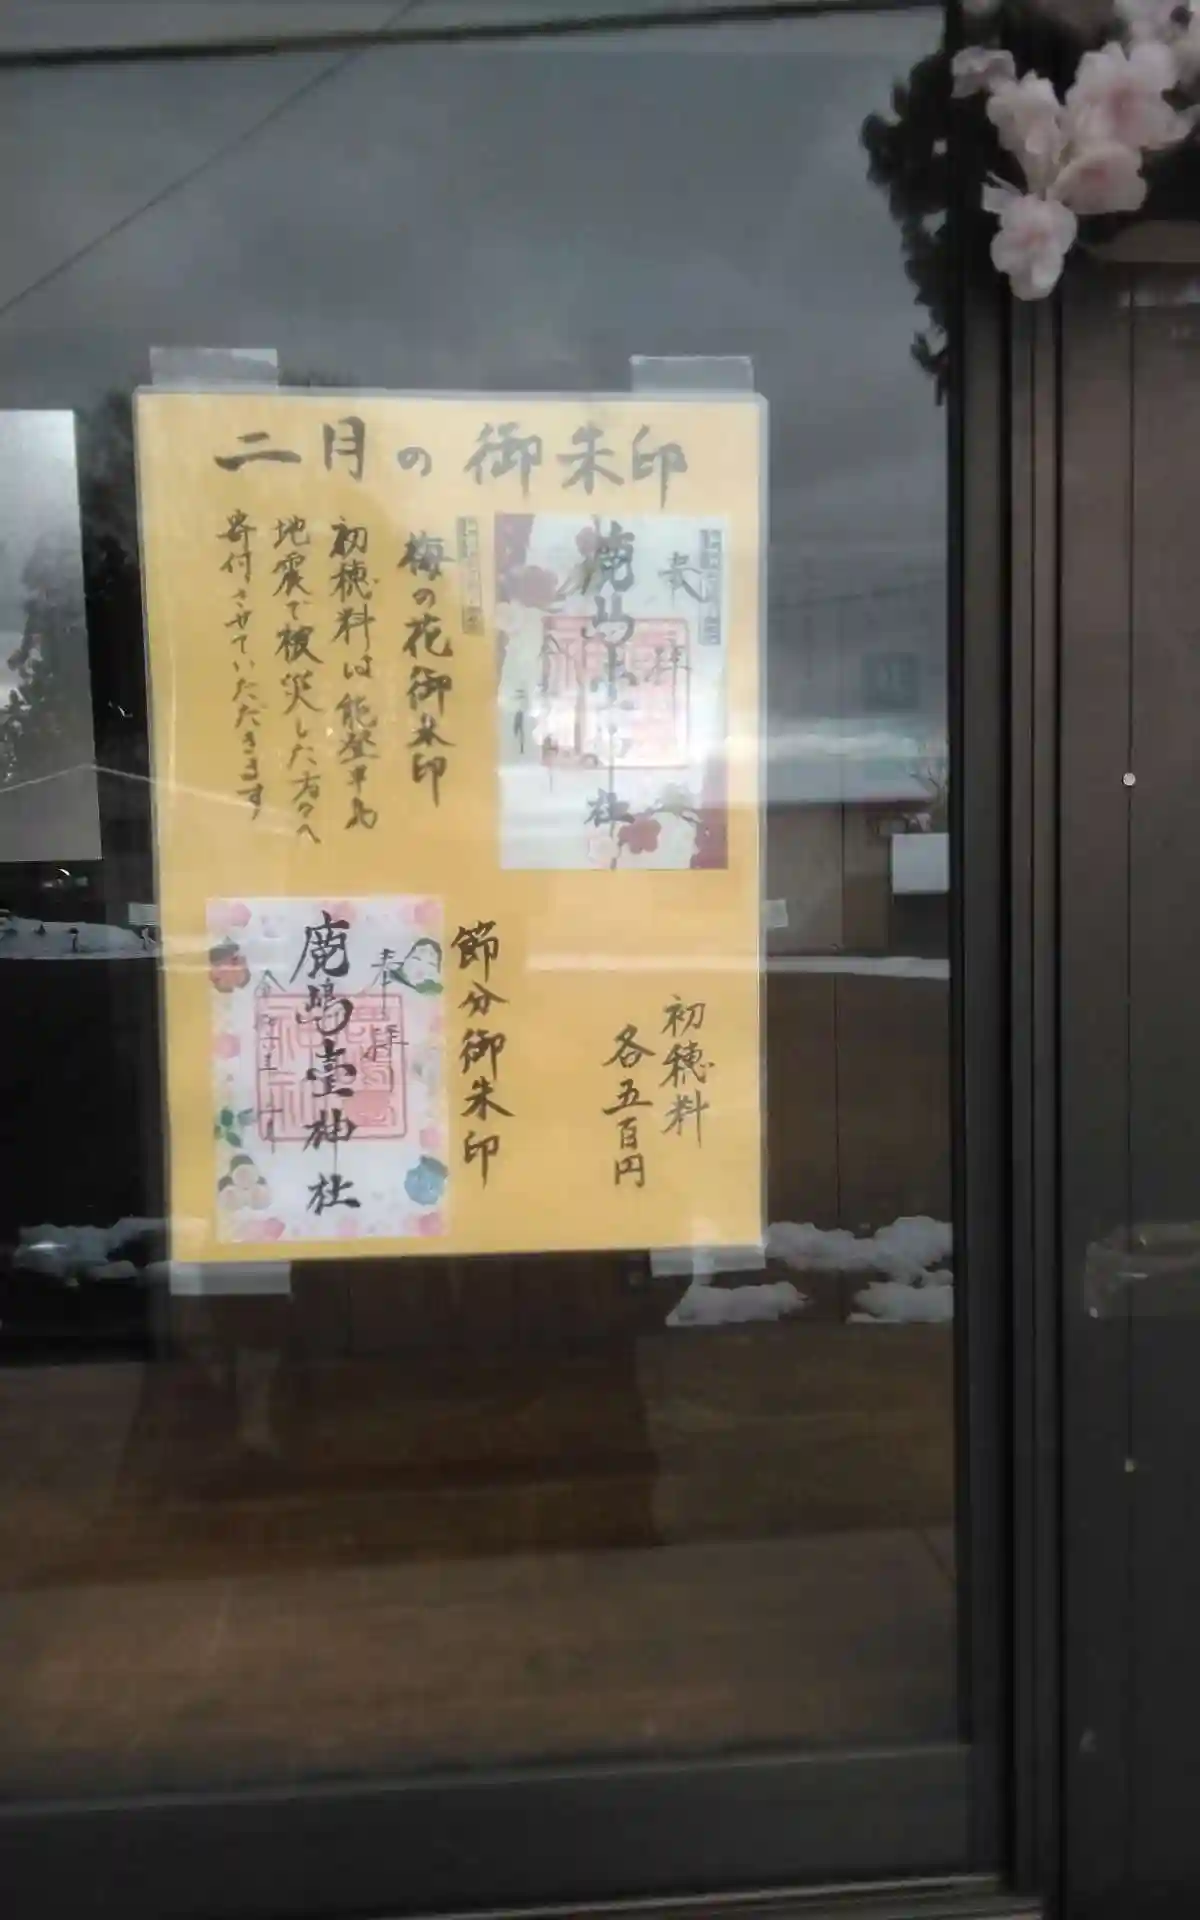 二月の御朱印
奉拝
鹿嶋
神社
二月
梅の花御朱印
初穂料は能登半島
地震で被災した方々へ
寄付させていただきます
初穂料
各五百円
節分御朱印
奉拝
鹿嶋臺神社